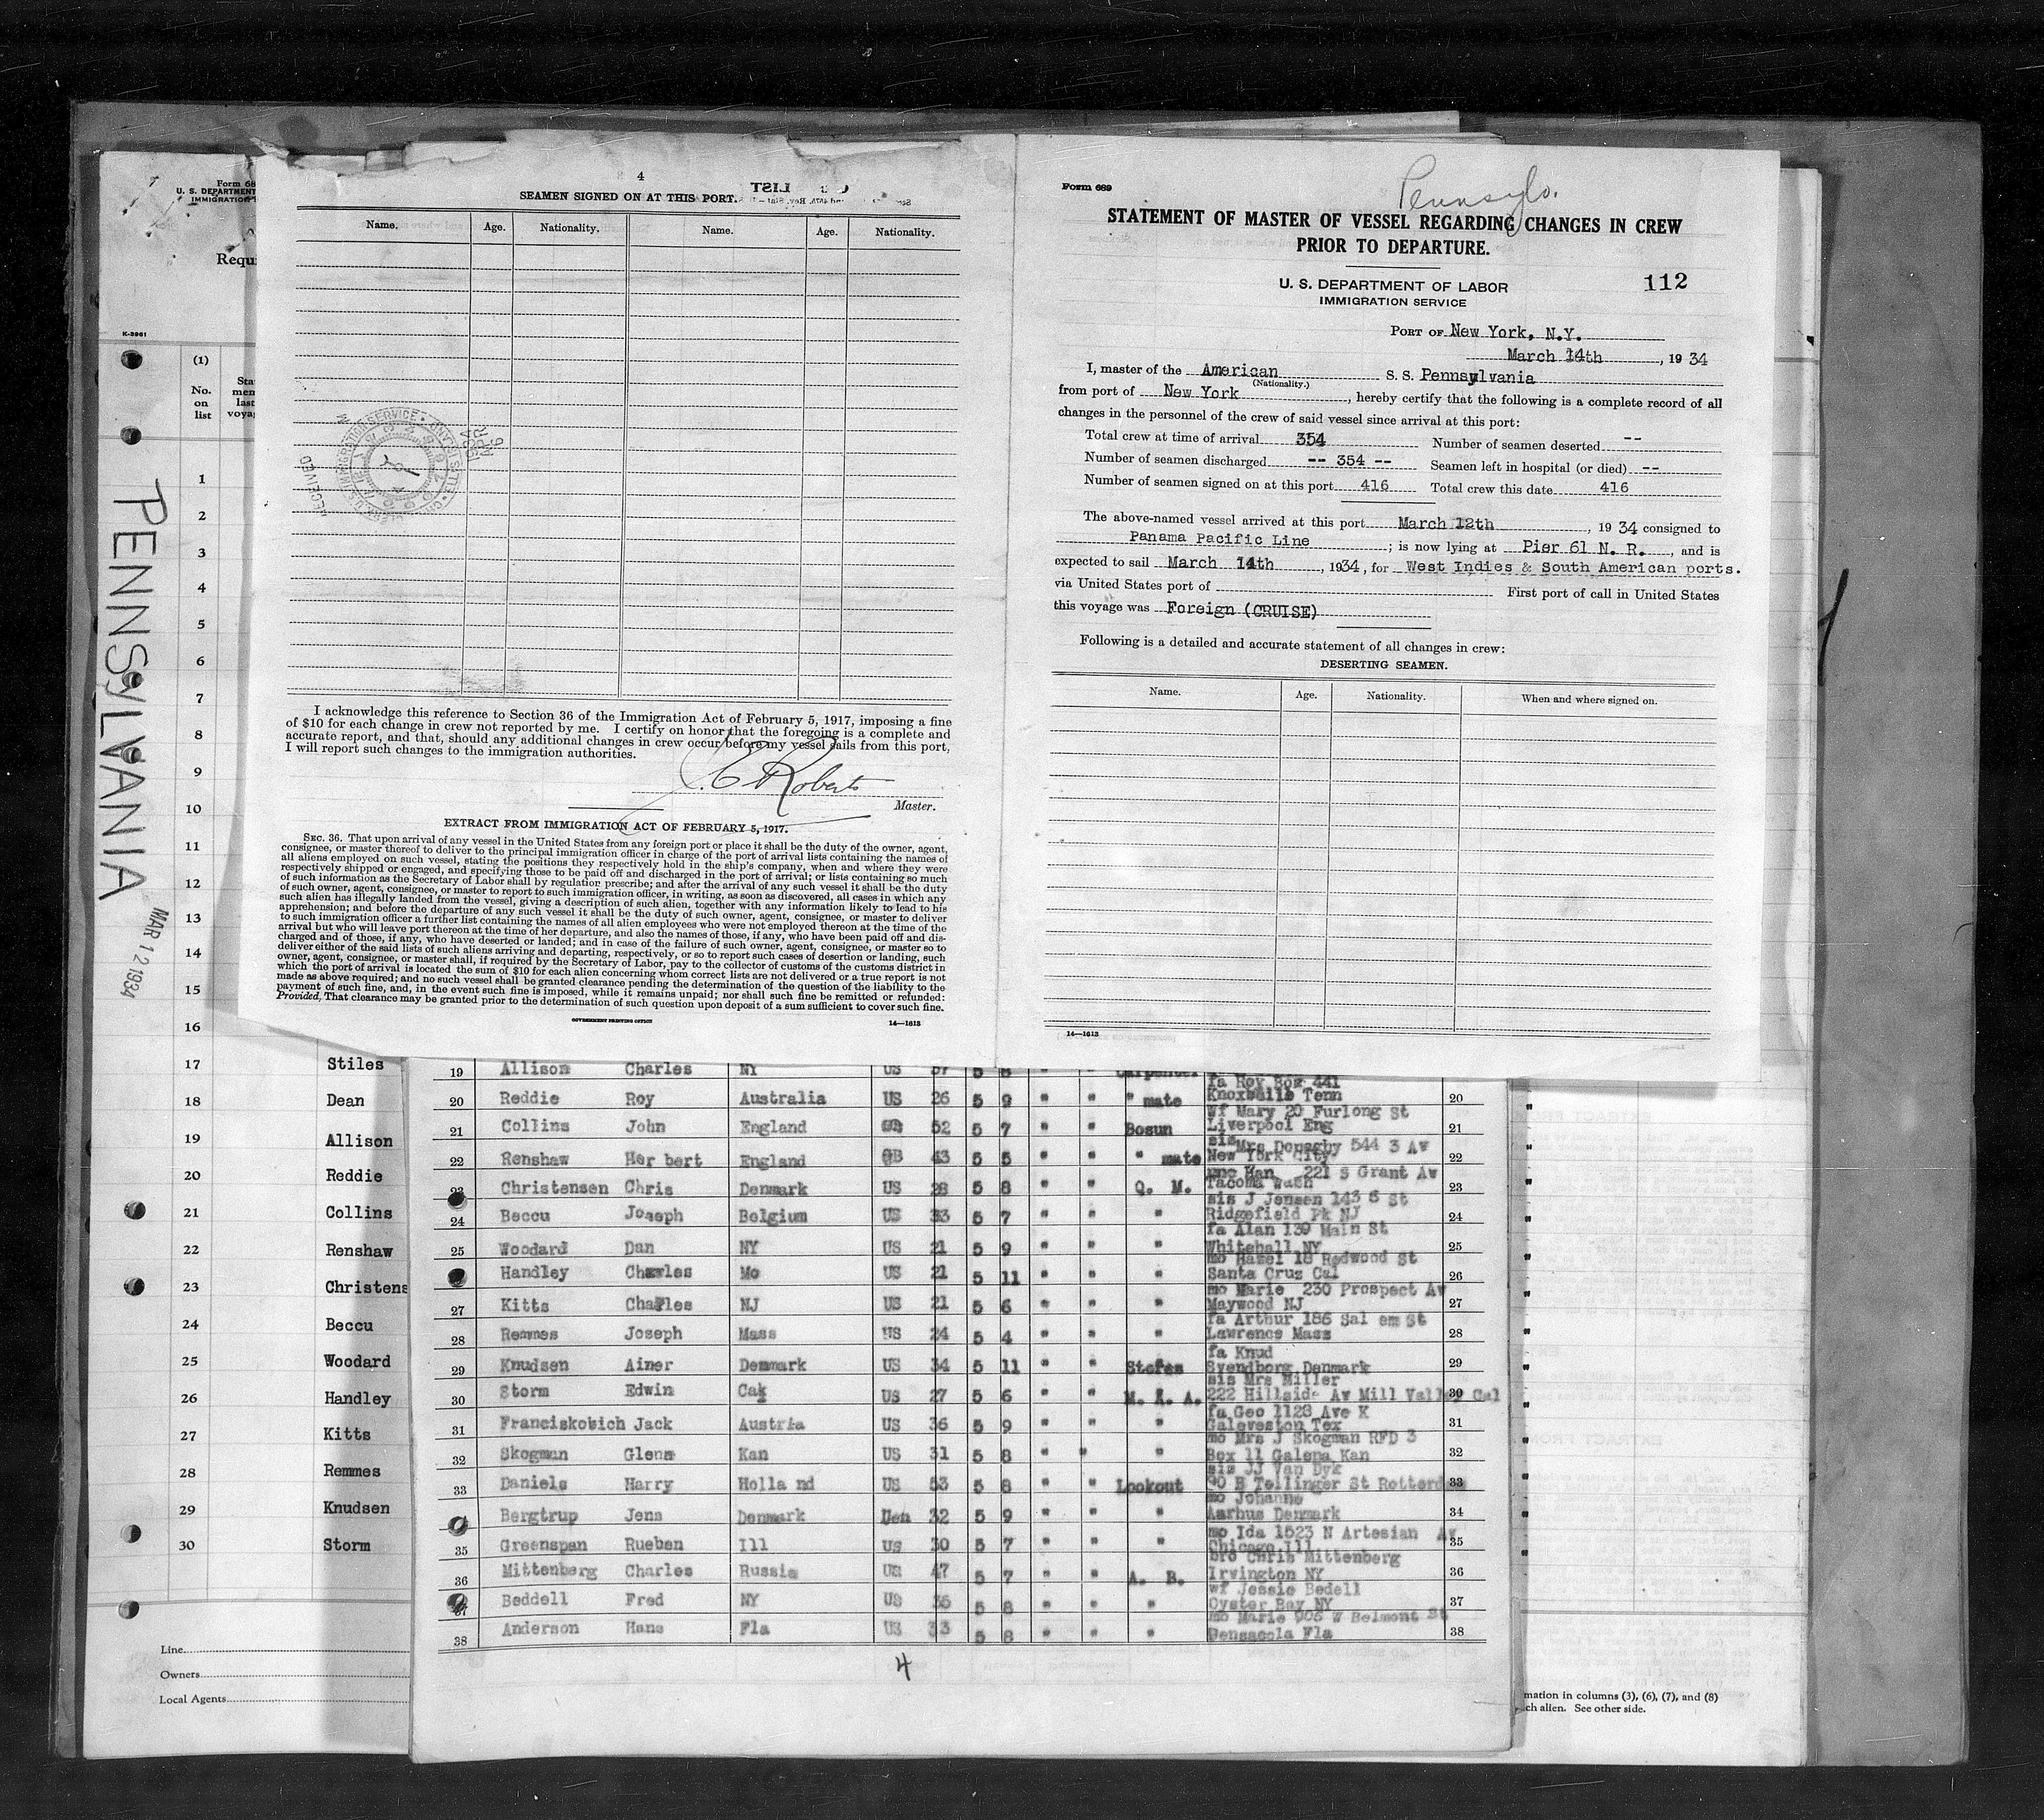 Form 68
U. S. DEPARTMENT
IMMIGRATION
Requ
K-3961
(1)
No.
on
list
Sta
men
last
voya
1
2
3
4
5
6
7
8
9
10
11
12
13
14
15
16
17 Stiles
18 Dean
19 Allison
20 Reddie
21 Collins
22 Renshaw
23 Christens
24 Beccu
25 Woodard
26 Handley
27 Kitts
28 Remmes
29 Knudsen
30 Storm
Line
Owners
Local Agents
PENNSYLVANIA
MAR 12 1934
4
SEAMEN SIGNED ON AT THIS PORT.
LIST
Name. Age. Nationality. Name. Age. Nationality.
RECEIVED
APR 3
I acknowledge this reference to Section 36 of the Immigration Act of February 5, 1917, imposing a fine
of $10 for each change in crew not reported by me. I certify on honor that the foregoing is a complete and
accurate report, and that, should any additional changes in crew occur before my vessel sails from this port,
I will report such changes to the immigration authorities.
Roberts
Master.
EXTRACT FROM IMMIGRATION ACT OF FEBRUARY 5, 1917.
SEC. 36. That upon arrival of any vessel in the United States from any foreign port or place it shall be the duty of the owner, agent,
consignee, or master thereof to deliver to the principal immigration officer in charge of the port of arrival lists containing the names of
all aliens employed on such vessel, stating the positions they respectively hold in the ship's company, when and where they were
respectively shipped or engaged, and specifying those to be paid off and discharged in the port of arrival; or lists containing so much
of such information as the Secretary of Labor shall by regulation prescribe; and after the arrival of any such vessel it shall be the duty
of such owner, agent, consignee, or master to report to such immigration officer, in writing, as soon as discovered, all cases in which any
such alien has illegally landed from the vessel, giving a description of such alien, together with any information likely to lead to his
apprehension; and before the departure of any such vessel it shall be the duty of such owner, agent, consignee, or master to deliver
to such immigration officer a further list containing the names of all alien employees who were not employed thereon at the time of the
arrival but who will leave port thereon at the time of her departure, and also the names of those, if any, who have been paid off and dis-
charged and of those, if any, who have deserted or landed; and in case of the failure of such owner, agent, consignee, or master so to
deliver either of the said lists of such aliens arriving and departing, respectively, or so to report such cases of desertion or landing, such
owner, agent, consignee, or master shall, if required by the Secretary of Labor, pay to the collector of customs of the customs district in
which the port of arrival is located the sum of $10 for each alien concerning whom correct lists are not delivered or a true report is not
made as above required; and no such vessel shall be granted clearance pending the determination of the question of the liability to the
payment of such fine, and, in the event such fine is imposed, while it remains unpaid; nor shall such fine be remitted or refunded:
Provided, That clearance may be granted prior to the determination of such question upon deposit of a sum sufficient to cover such fine.
GOVERNMENT PRINTING OFFICE 14—1613
Form 689
Pennsylv.
STATEMENT OF MASTER OF VESSEL REGARDING CHANGES IN CREW
PRIOR TO DEPARTURE.
U. S. DEPARTMENT OF LABOR
IMMIGRATION SERVICE
112
PORT OF New York, N.Y.
March 14th, 19 34
I, master of the American S. S. Pennsylvania
(Nationality.)
from port of New York, hereby certify that the following is a complete record of all
changes in the personnel of the crew of said vessel since arrival at this port:
Total crew at time of arrival 354 Number of seamen deserted --
Number of seamen discharged -- 354 -- Seamen left in hospital (or died) --
Number of seamen signed on at this port 416 Total crew this date 416
The above-named vessel arrived at this port March 12th, 19 34 consigned to
Panama Pacific Line; is now lying at Pier 61 N. R., and is
expected to sail March 14th, 1934, for West Indies & South American ports.
via United States port of First port of call in United States
this voyage was Foreign (CRUISE)
Following is a detailed and accurate statement of all changes in crew:
DESERTING SEAMEN.
Name. Age. Nationality. When and where signed on.
14—1613
19 Allison Charles NY US 57 5 8 " " Carpenter
fa Roy Box 441
20 Reddie Roy Australia US 26 5 9 " " " mate Knoxville Tenn 20
wf Mary 20 Furlong St
21 Collins John England 52 5 7 " " Bosun Liverpool Eng 21
sis Mrs Donagby 544 3 Av
22 Renshaw Her bert England GB 43 5 5 " " " mate New York City 22
unc Han 221 S Grant Av
23 Christensen Chris Denmark US 28 5 8 " " Q. M. Tacoma Wash 23
sis J Jensen 143 6 St
24 Beccu Joseph Belgium US 33 5 7 " " " Ridgefield Pk NJ 24
fa Alan 139 Main St
25 Woodard Dan NY US 21 5 9 " " " Whitehall NY 25
mo Hazel 18 Redwood St
Handley Charles Mo US 21 5 11 " " " Santa Cruz Cal 26
mo Marie 230 Prospect Av
27 Kitts Charles NJ US 21 5 6 " " " Maywood NJ 27
fa Arthur 186 Sal em St
28 Remmes Joseph Mass US 24 5 4 " " " Lawrence Mass 28
fa Knud
29 Knudsen Ainer Denmark US 34 5 11 " " Stores Svendborg Denmark 29
sis Mrs Miller
30 Storm Edwin Cal US 27 5 6 " " M. A. A. 222 Hillside Av Mill Valley Cal 30
fa Geo 1128 Ave K
31 Franciskobich Jack Austria US 36 5 9 " " " Galeveston Tex 31
mo Mrs J Skogman RFD 3
32 Skogman Glenn Kan US 31 5 8 " " " Box 11 Galena Kan 32
sis JJ Van Dyk
33 Daniels Harry Holla nd US 53 5 8 " " Lookout 90 B Teilinger St Rotterd 33
mo Johanne
Bergtrup Jens Denmark Den 32 5 9 " " " Aarhus Denmark 34
mo Ida 1523 N Artesian Av
35 Greenspan Rueben Ill US 30 5 7 " " " Chicago Ill 35
bro Chris Mittenberg
36 Mittenberg Charles Russia US 47 5 7 " " A. B. Irvington NY 36
wf Jessie Bedell
37 Beddell Fred NY US 36 5 8 " " " Oyster Bay NY 37
mo Marie 905 W Belmont St
38 Anderson Hans Fla US 33 5 8 " " " Densacola Fla 38
4
mation in columns (3), (6), (7), and (8)
ch alien. See other side.